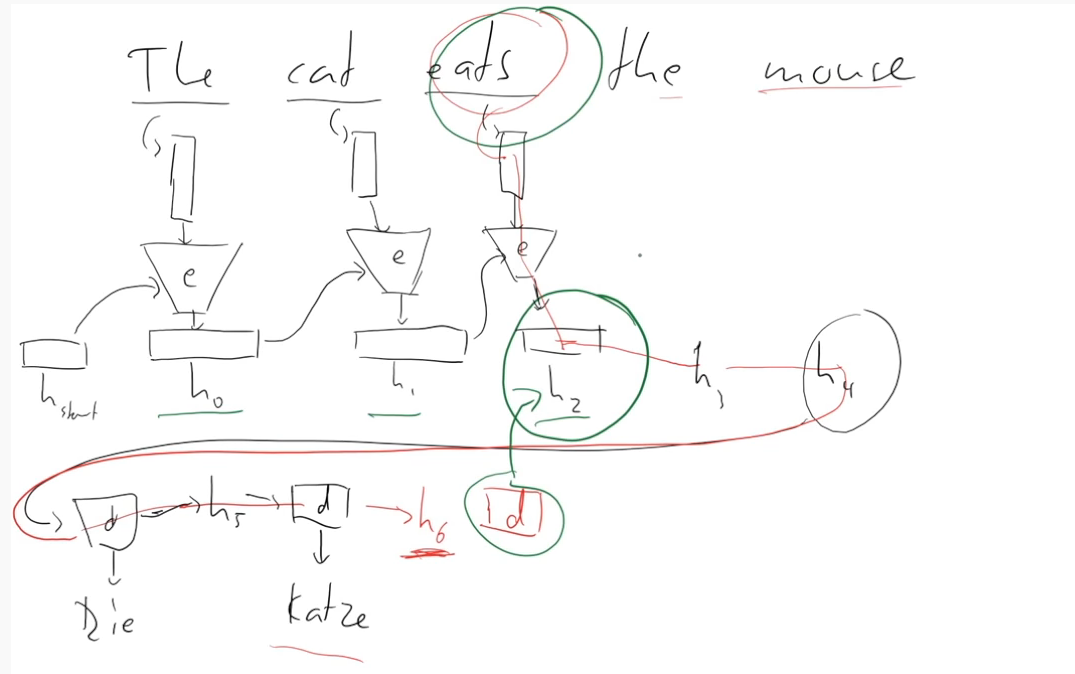 The cat eats the mouse
e e e
h start h0 h1 h2 h3 h4
d h5 d h6 d
Die Katze